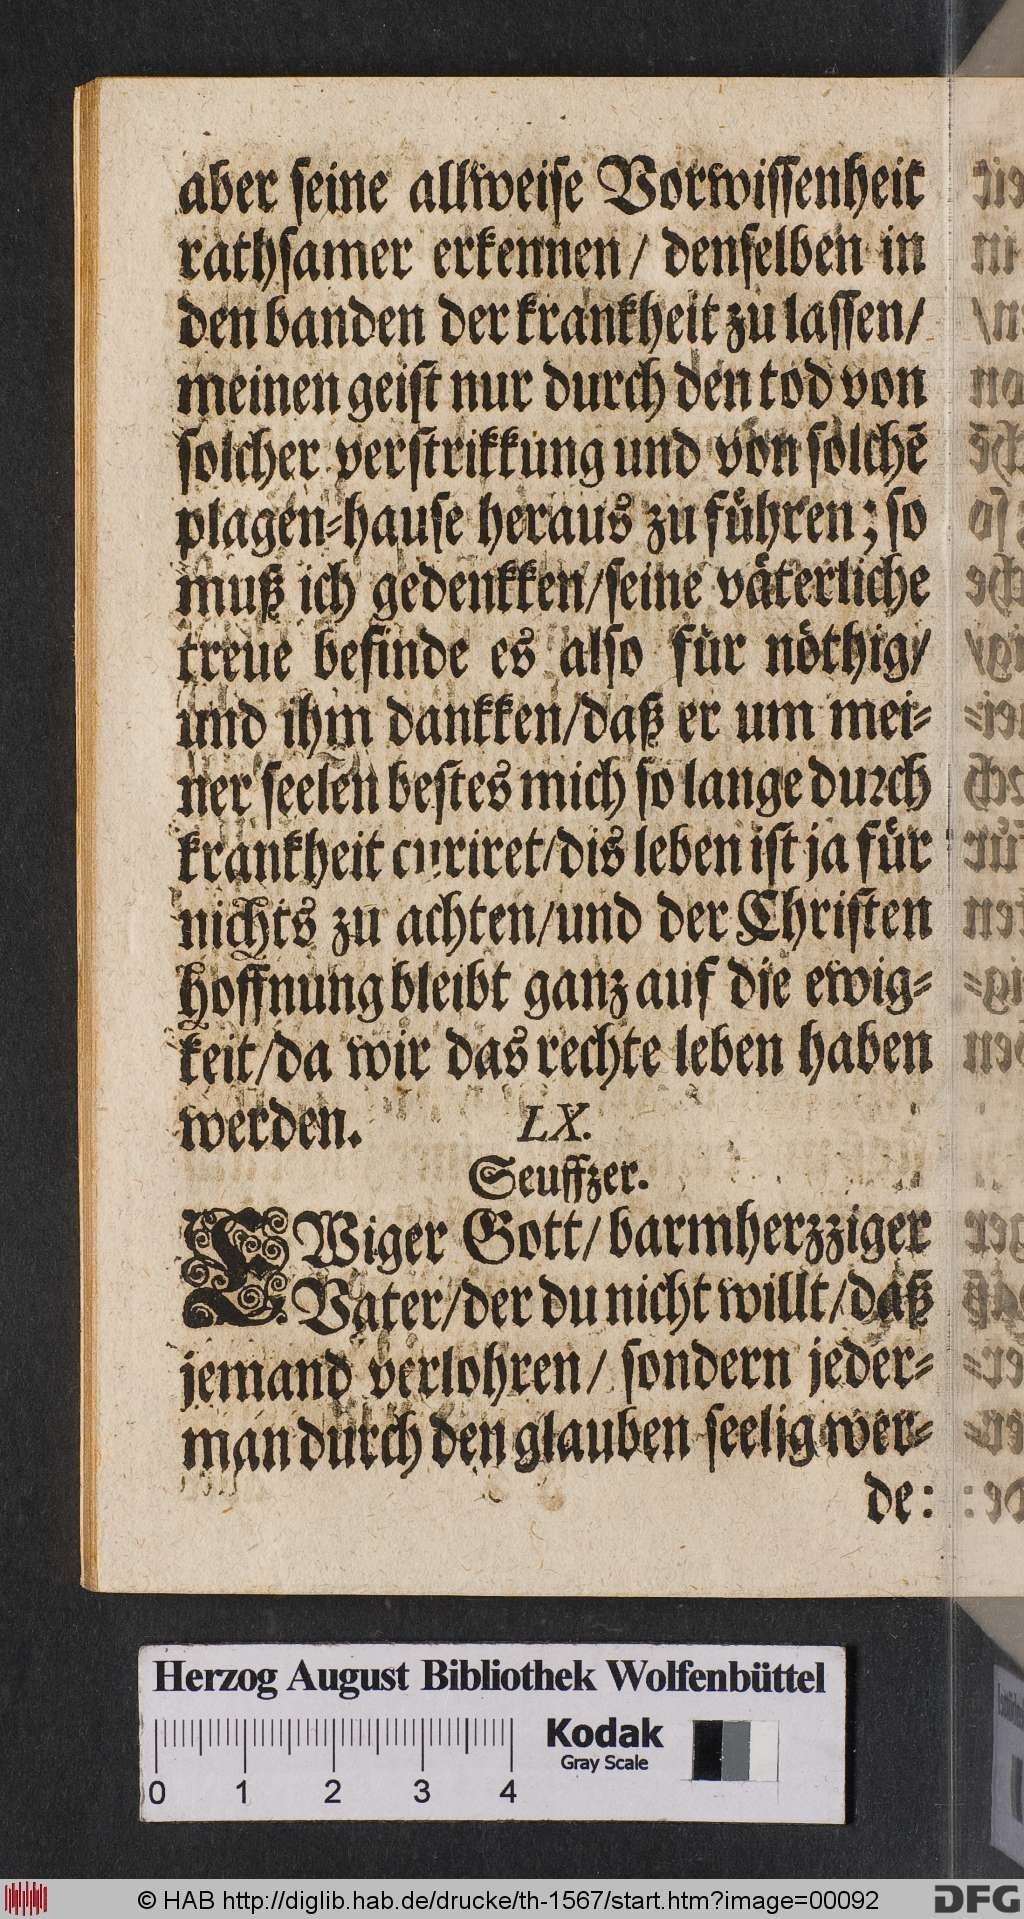 aber seine allweise Vorwissenheit
rathsamer erkennen/ denselben in
den banden der krankheit zu lassen/
meinen geist nur durch den tod von
solcher verstrikkung und von solchē
plagen-hause heraus zu fuͤhren; so
muß ich gedenkken/seine vaͤterliche
treue befinde es also fuͤr noͤthig/
und ihm dankken/daß er um mei-
ner seelen bestes mich so lange durch
krankheit curiret/dis leben ist ja fuͤr
nichts zu achten/und der Christen
hoffnung bleibt ganz auf die ewig-
keit/da wir das rechte leben haben
werden.
LX.
Seuffzer.
EWiger Gott/barmherzziger
Vater/der du nicht willt/daß
jemand verlohren/ sondern jeder-
man durch den glauben seelig wer-
de:
Herzog August Bibliothek Wolfenbüttel
Kodak
Gray Scale
0 1 2 3 4
© HAB http://diglib.hab.de/drucke/th-1567/start.htm?image=00092
DFG